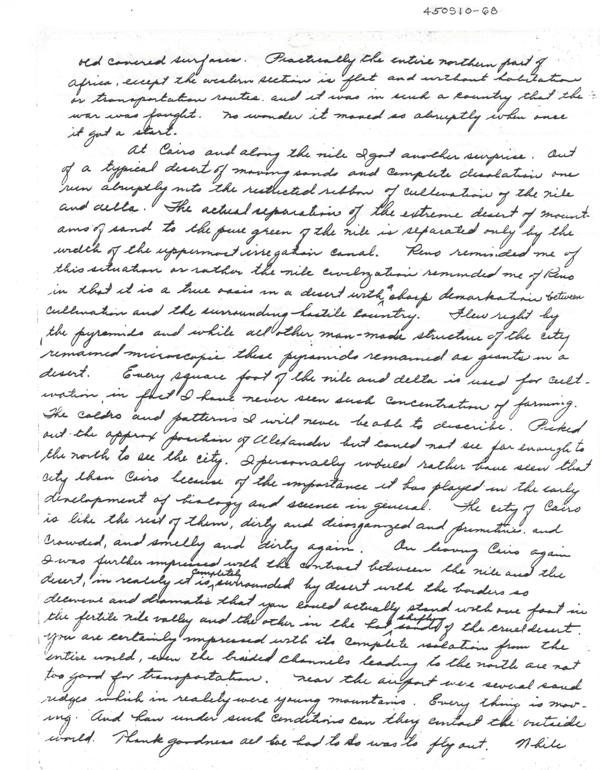 450910-68
old covered surfaces. Practically the entire northern part of
Africa, ecept the western section is flat and without habitation
or transportation routes and it was in such a country that the
war was fought. No wonder it moved so abruptly when once
it got a start.
At Cairo and along the nile I got another surprise. Out
of a typical desert of moving sands and complete desolation one
runs abruptly into the restricted ribbon of cultivation of the nile
and delta. The actual separation of the extreme desert of mount-
ains of sand to the pure green of the nile is separated only by the
width of the uppermost irregation canal. Reno reminded me of
this situation or rather the nile civilization reminded me of Reno
in that it is a true oasis in a desert with a sharp demarkation between
cultivation and the surrounding hostile country. Flew right by
the pyramids and while all other man-made structure of the city
remained microscopic these pyramids remained as giants in a
desert. Every square foot of the nile and delta is used for cult-
ivation, in fact I have never seen such concentration of farming.
The colors and patterns I will never be able to describe. Picked
out the approx position of Alexander but could not see far enough to
the north to see the city. I personally would rather have seen that
city than Cairo because of the importance it has played in the early
development of biology and science in general. The city of Cairo
is like the rest of them, dirty and disorganized and primitive, and
crowded, and smelly and dirty again. On leaving Cairo again
I was further impressed with the contrast between the nile and the
desert, in reality it is completely surrounded by desert with the borders so
decisive and dramatic that you could actually stand with one foot in
the fertile nile valley and the other in the hot shifting sands of the cruel desert.
You are certainly impressed with its complete isolation from the
entire world, even the braided channels leading to the north are not
too good for transportation. Near the airport were several sand
ridges which in reality were young mountains. Every thing is mov-
ing. And how under such conditions can they contact the outside
world. Thank goodness all we had to do was to fly out. While